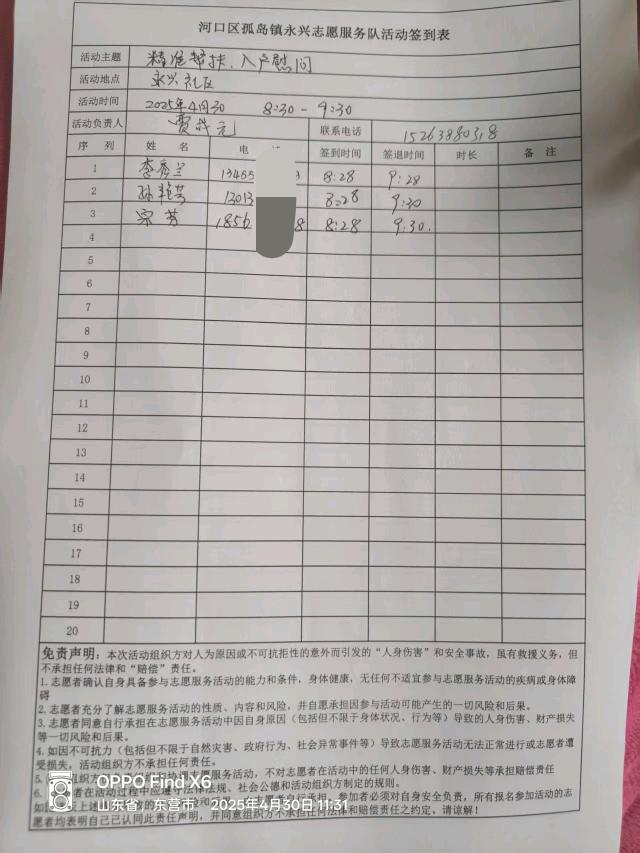 河口区孤岛镇永兴志愿服务队活动签到表
活动主题 精准帮扶、入户慰问
活动地点 永兴社区
活动时间 2025年4月30 8:30-9:30
活动负责人 联系电话 15263880318
序 列 姓 名 电 签到时间 签退时间 时长 备 注
1 李秀兰 13465 3 8:28 9:28
2 孙艳芳 13013 8:28 9:30
3 宗芳 1856 8 8:28 9:30.
4
5
6
7
8
9
10
11
12
13
14
15
16
17
18
19
20
免责声明：本次活动组织方对人为原因或不可抗拒性的意外而引发的“人身伤害”和安全事故，虽有救援义务，但
不承担任何法律和“赔偿”责任。
1. 志愿者确认自身具备参与志愿服务活动的能力和条件，身体健康，无任何不适宜参与志愿服务活动的疾病或身体障
碍
2. 志愿者充分了解志愿服务活动的性质、内容和风险，并自愿承担因参与活动可能产生的一切风险和后果。
3. 志愿者同意自行承担在志愿服务活动中因自身原因（包括但不限于身体状况、行为等）导致的人身伤害、财产损失
等一切风险和后果。
4. 如因不可抗力（包括但不限于自然灾害、政府行为、社会异常事件等）导致志愿服务活动无法正常进行或志愿者遭
受损失，活动组织方不承担任何责任。
5. 组织方 志愿服务活动，不对志愿者在活动中的任何人身伤害、财产损失等承担赔偿责任
6. 者在活动过程中应遵守法律法规、社会公德和活动组织方制定的规则。
如 上述 的 和 自行承担。参加者必须对自身安全负责，所有报名参加活动的志
愿者均表明自己已认同此责任声明，并同意组织方不承担任何法律和赔偿责任之约定。请谅解！
OPPO Find X6
山东省，东营市 2025年4月30日 11:31